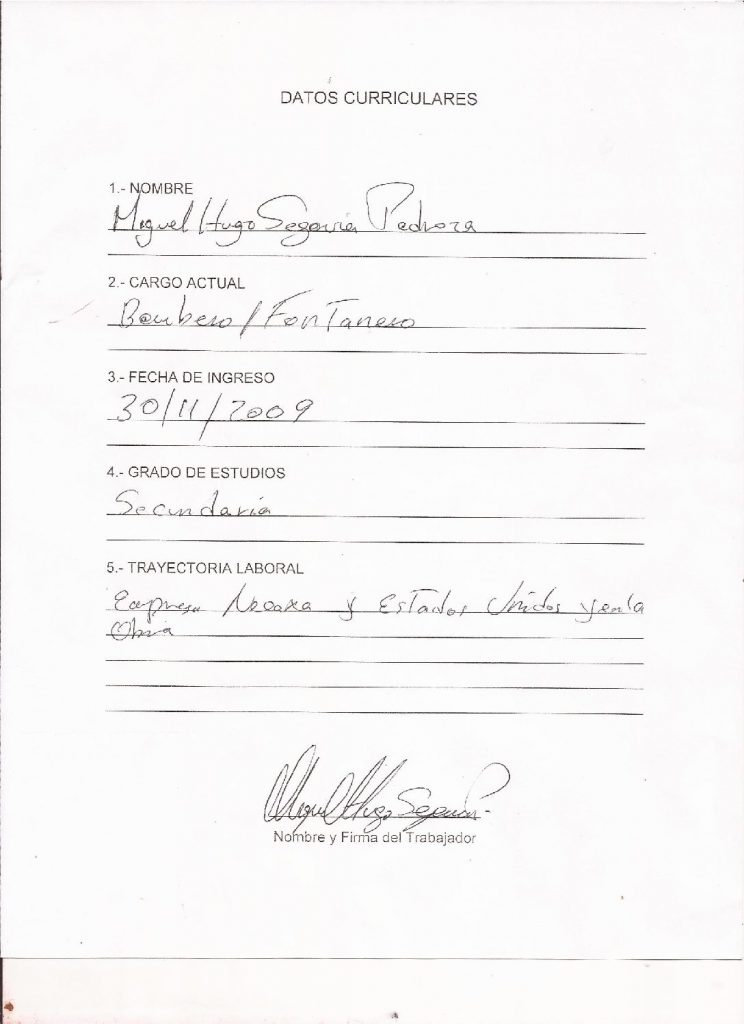 DATOS CURRICULARES
1.- NOMBRE
Miguel Hugo Segovia Pedroza
2.- CARGO ACTUAL
Bombero / Fontanero
3.- FECHA DE INGRESO
30/11/2009
4.- GRADO DE ESTUDIOS
Secundaria
5.- TRAYECTORIA LABORAL
Empresa y Estados Unidos y en la
Obra
Miguel Hugo
Nombre y Firma del Trabajador